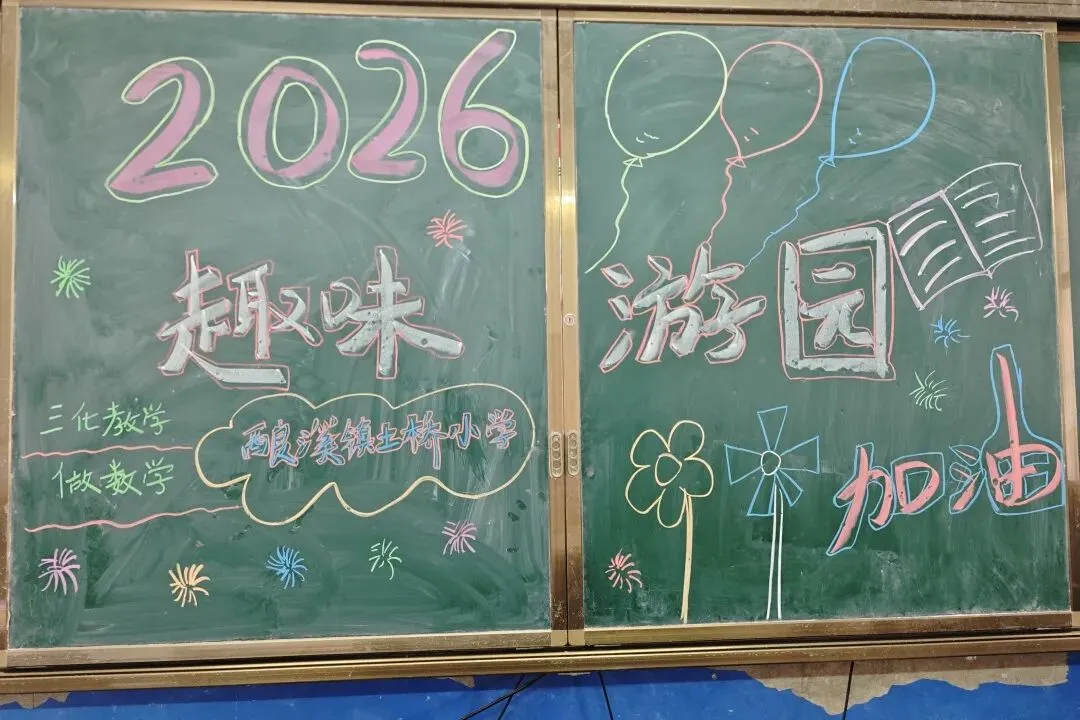 2026
趣味
游园
三化教学
做数学
酿溪镇土桥小学
加油